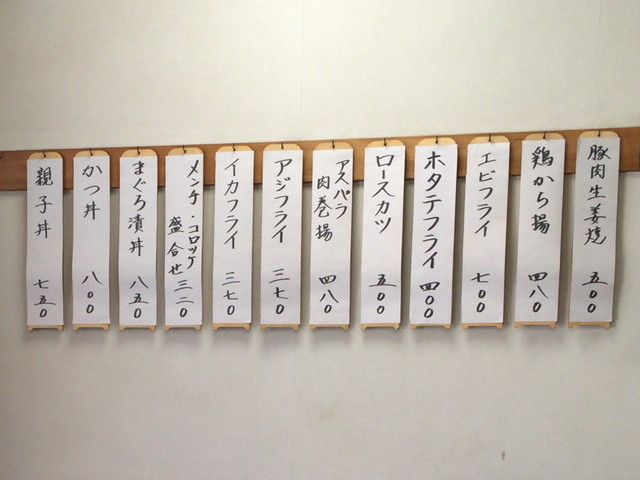 豚肉生姜焼 五00
鶏から揚 四八0
エビフライ 七00
ホタテフライ 四00
ロースカツ 五00
アスパラ
肉巻揚 四八0
アジフライ 三七0
イカフライ 三七0
メンチ・コロッケ
盛合せ 三二0
まぐろ漬丼 八五0
かつ丼 八00
親子丼 七五0